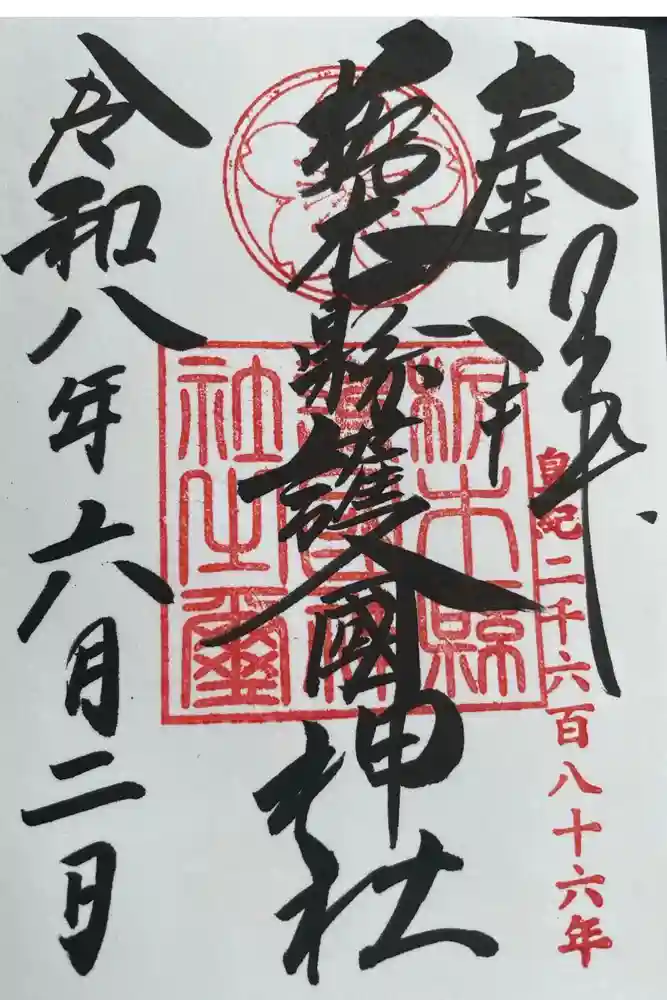 奉
皇紀二千六百八十六年
栃木縣護國神社
栃木縣
護國神
社之璽
令和八年六月二日